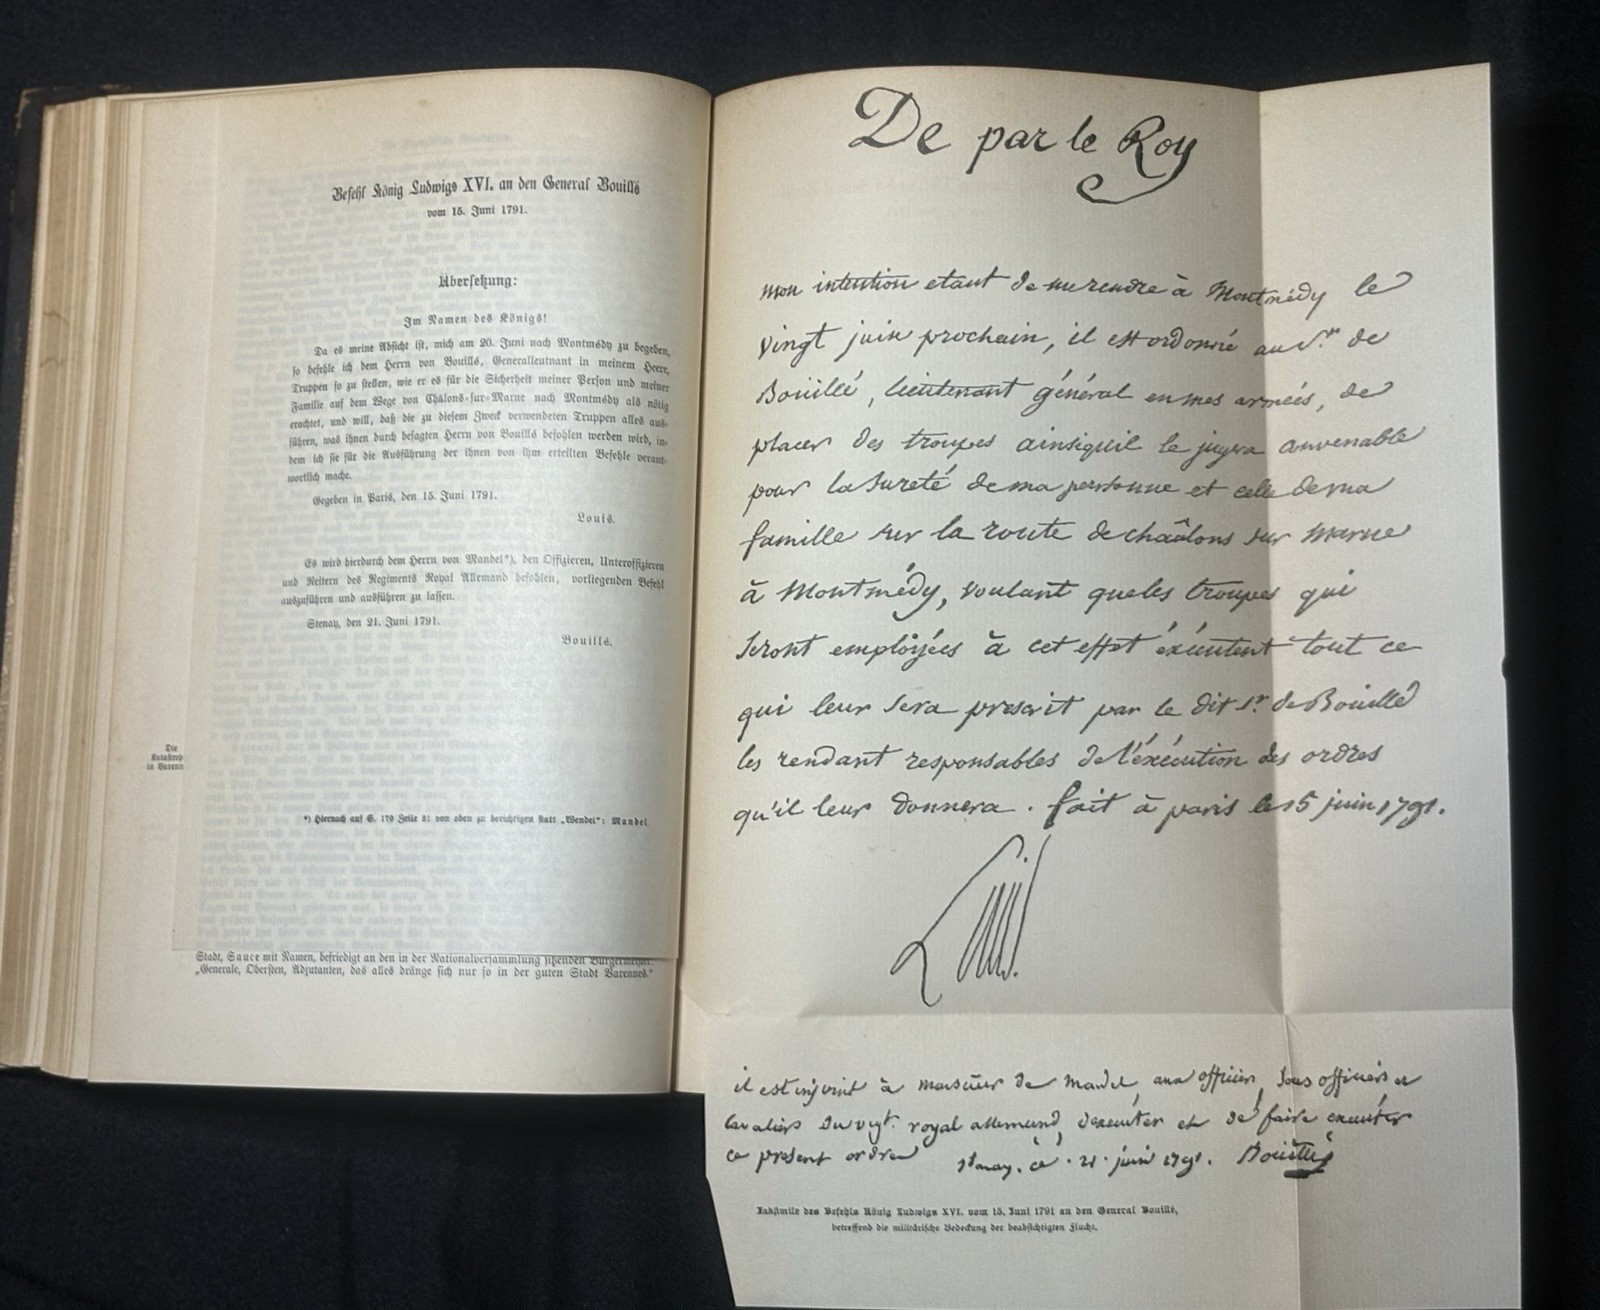 Befehl König Ludwigs XVI. an den General Bouillé
vom 15. Juni 1791.
Übersetzung:
Im Namen des Königs!
Da es meine Absicht ist, mich am 20. Juni nach Montmédy zu begeben,
so befehle ich dem Herrn von Bouillé, Generalleutnant in meinem Heere,
Truppen so zu stellen, wie er es für die Sicherheit meiner Person und meiner
Familie auf dem Wege von Châlons-sur-Marne nach Montmédy als nötig
erachtet, und will, daß die zu diesem Zweck verwendeten Truppen alles aus-
führen, was ihnen durch besagten Herrn von Bouillé befohlen werden wird, in-
dem ich sie für die Ausführung der ihnen von ihm erteilten Befehle verant-
wortlich mache.
Gegeben in Paris, den 15. Juni 1791.
Louis.
Es wird hierdurch dem Herrn von Mandel*), den Offizieren, Unteroffizieren
und Reitern des Regiments Royal Allemand befohlen, vorliegenden Befehl
auszuführen und ausführen zu lassen.
Stenay, den 21. Juni 1791.
Bouillé.
Die
Katastrop
in Varenn
*) Hiernach auf S. 179 Zeile 21 von oben zu berichtigen statt „Wendel": Mandel
Stadt, Sauce mit Namen, befriedigt an den in der Nationalversammlung sitzenden Bürgermeister.
„Generale, Obersten, Adjutanten, das alles dränge sich nur so in der guten Stadt Varennes."
De par le Roy
mon intention etant de me rendre à Montmédy le
vingt juin prochain, il est ordonné au S.r de
Boüillé, lieutenant général en mes armées, de
placer des troupes ainsi qu'il le jugera convenable
pour la Sureté de ma personne et celle de ma
famille sur la route de chaâlons sur Marne
à Montmédy, voulant que les troupes qui
Seront employées à cet effet éxécutent tout ce
qui leur Sera prescrit par le dit S.r de Bouillé
les rendant responsables de l'éxécution des ordres
qu'il leur donnera. fait à paris le 15 juin 1791.
Louis
il est enjoint à monsieur de Mandel, aux officiers, Sous officiers et
Cavaliers du regt. royal allemand, d'executer et de faire executer
ce present ordre Stenay, ce 21 juin 1791. Bouillé
Faksimile des Befehls König Ludwigs XVI. vom 15. Juni 1791 an den General Bouillé,
betreffend die militärische Bedeckung der beabsichtigten Flucht.